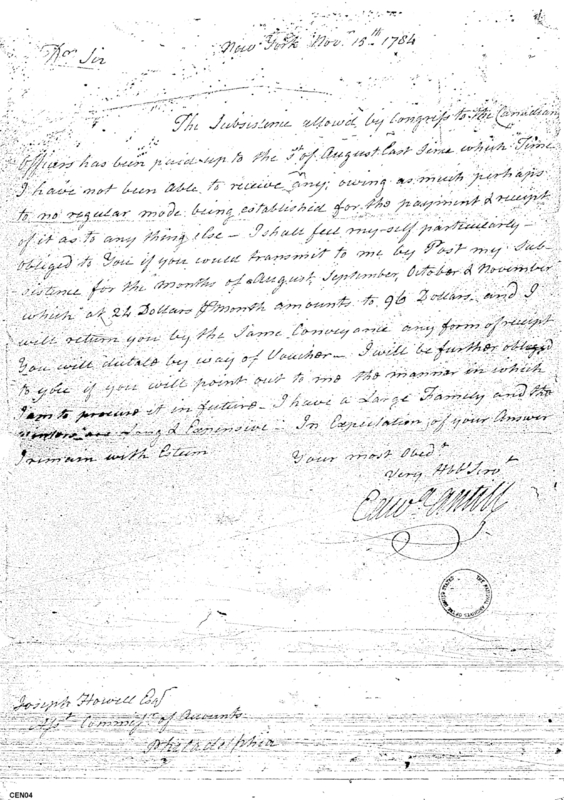 New York Nov. 15th 1784
Dr Sir
The Subsistence allow'd by Congress to the Canadian
Officers has been paid up to the 1st of August last Since which Time
I have not been able to receive any; owing as much perhaps
to no regular mode being established for the payment & receipt
of it as to any thing else - I shall feel my self particularly
obliged to You if you would transmit to me by Post my Sub-
sistence for the months of August, September, October & November
which at 24 Dollars Pr Month amounts to 96 Dollars. and I
will return you by the Same Conveyance any form of receipt
You will dictate by way of Voucher - I will be further obliged
to you if you will point out to me the manner in which
I am to procure it in future - I have a Large Family and the
are Long & Expensive - In Expectation of your Answer
I remain with Esteem
Your most Obedt
Very Hble Servt
Edwd Antill
THE NATIONAL ARCHIVES OF THE UNITED STATES
Joseph Howell Esqr
Asst Commissr of Accounts
Philadelphia
CEN04